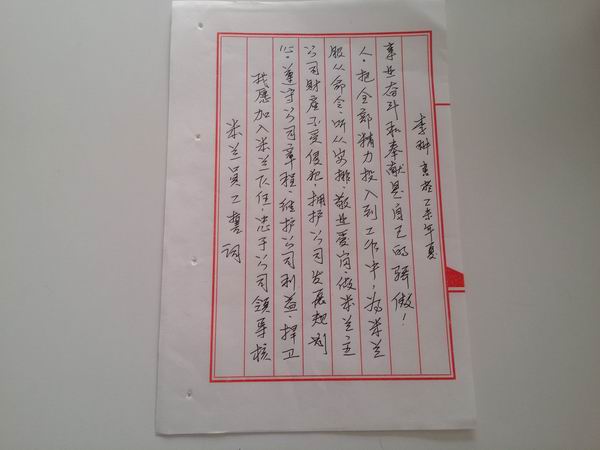 米兰员工誓词
我愿加入米兰大任,忠于公司領導核
心,遵守公司章程,维护公司利益,捍卫
公司財産不受侵犯,拥护公司发展规划
服从命令,听从安排,敬业爱岗,做米兰主
人,把全部精力投入到工作中,为米兰
事业奋斗和奉献是自己的骄傲!
李 书於乙未年夏